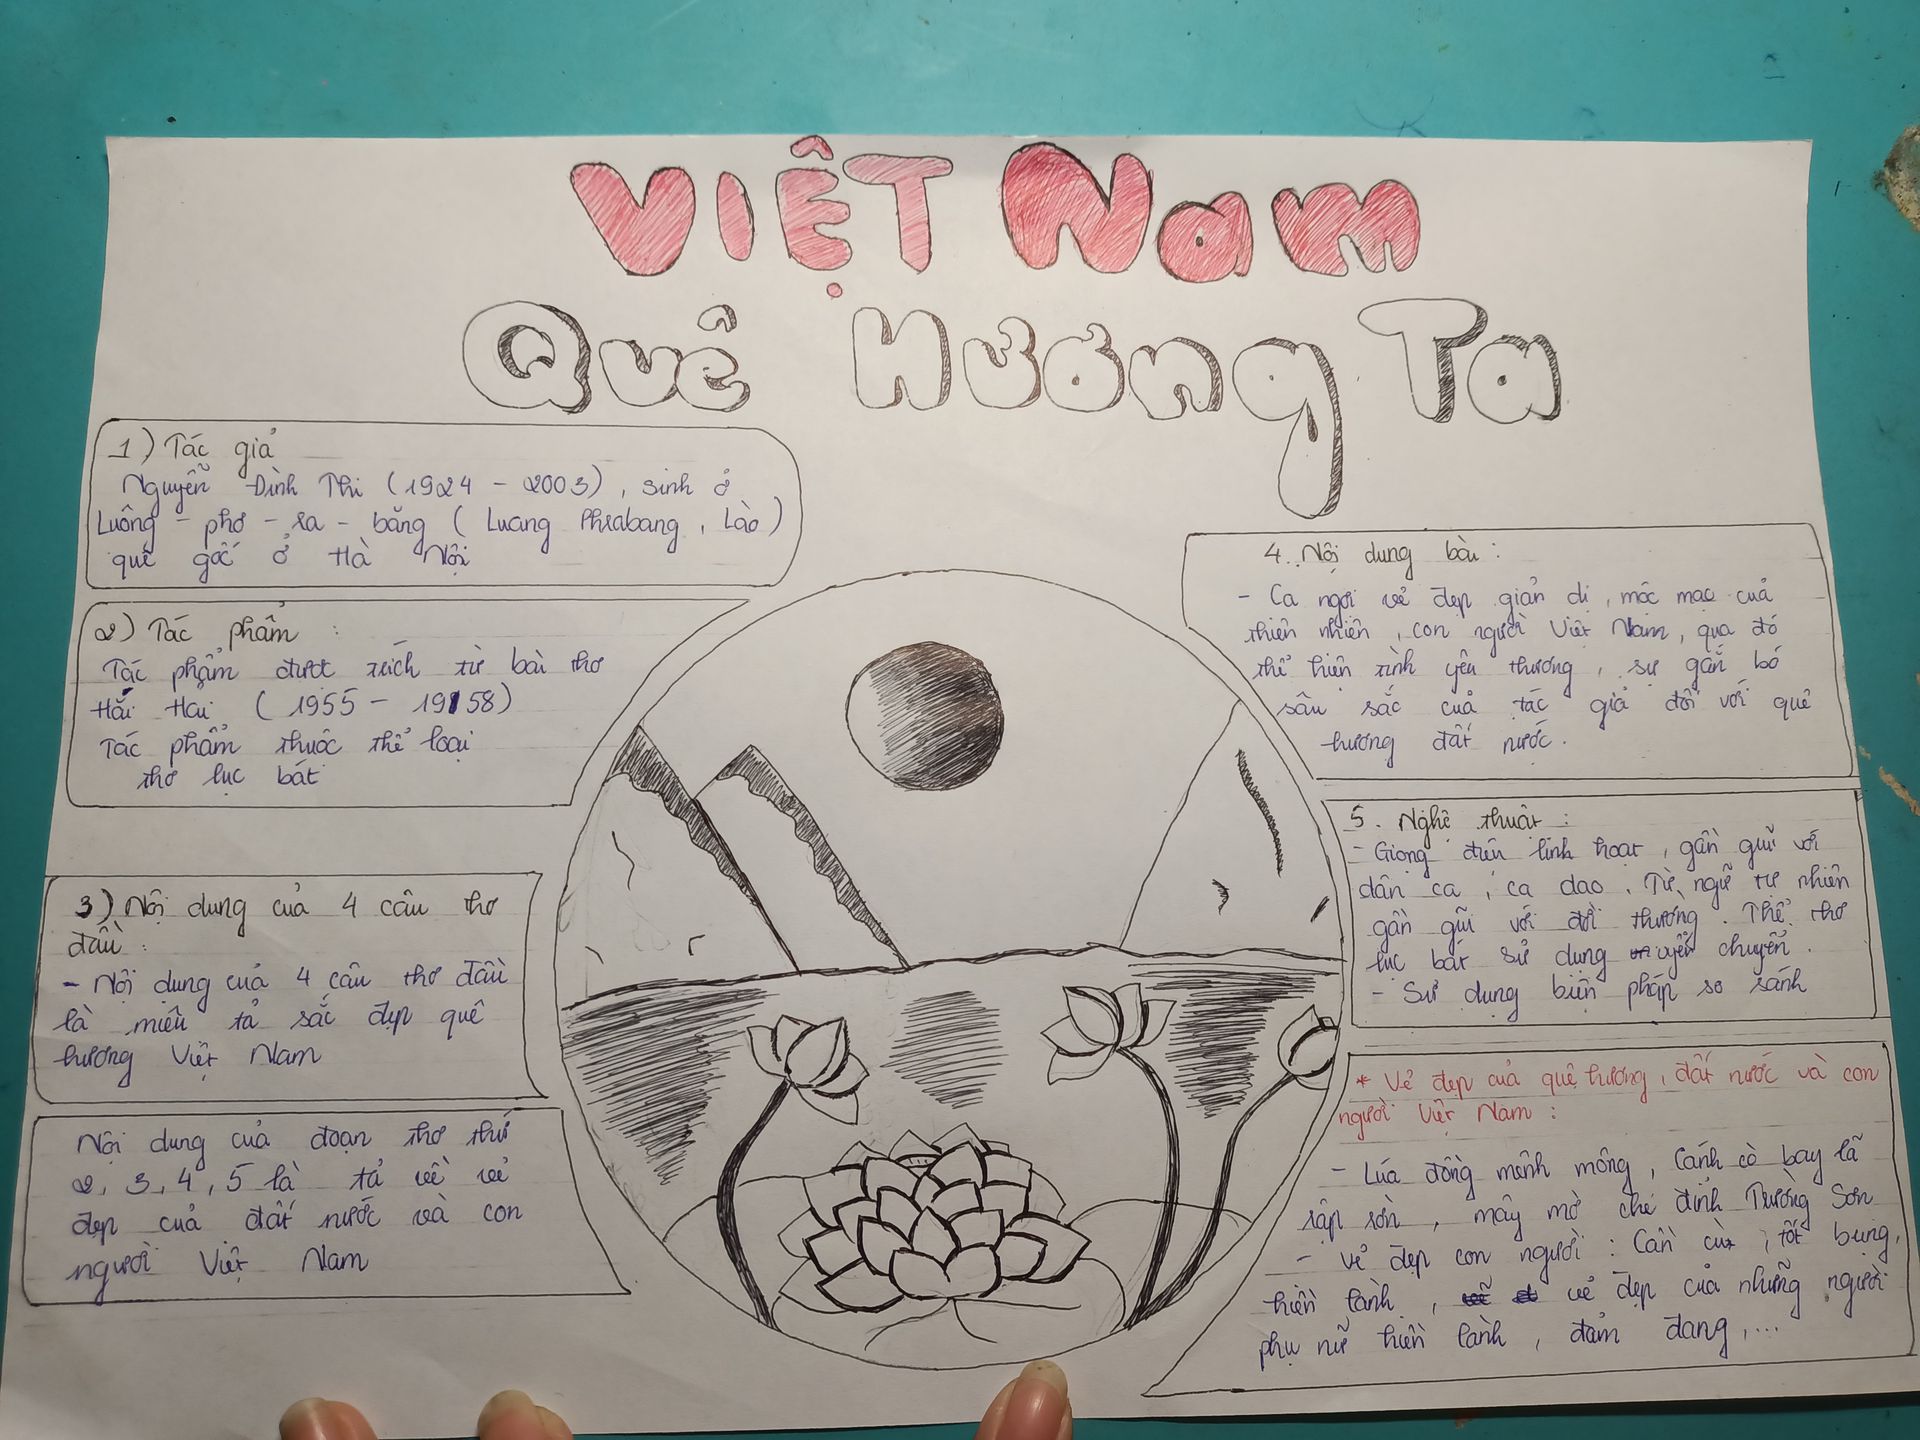 VIỆT Nam
Quê Hương Ta
1) Tác giả
Nguyễn Đình Thi (1924 - 2003), sinh ở
Luông - pha - ra - băng ( Luang Phrabang, Lào)
quê gốc ở Hà Nội
2) Tác phẩm :
Tác phẩm được trích từ bài thơ
Hắc Hải ( 1955 - 1958)
Tác phẩm thuộc thể loại
thơ lục bát
3) Nội dung của 4 câu thơ
đầu :
- Nội dung của 4 câu thơ đầu
là miêu tả sắc đẹp quê
hương Việt Nam
Nội dung của đoạn thơ thứ
2, 3, 4, 5 là tả về vẻ
đẹp của đất nước và con
người Việt Nam
4. Nội dung bài :
- Ca ngợi vẻ đẹp giản dị, mộc mạc của
thiên nhiên, con người Việt Nam, qua đó
thể hiện tình yêu thương, sự gắn bó
sâu sắc của tác giả đối với quê
hương đất nước.
5. Nghệ thuật :
- Giọng điệu linh hoạt, gần gũi với
dân ca, ca dao. Từ ngữ tự nhiên
gần gũi với đời thường. Thể thơ
lục bát sử dụng uyển chuyển.
- Sử dụng biện pháp so sánh
* Vẻ đẹp của quê hương, đất nước và con
người Việt Nam :
- Lúa đồng mênh mông, Cánh cò bay lả
rập rờn, mây mờ che đỉnh Trường Sơn
- Vẻ đẹp con người : Cần cù, tốt bụng,
hiền lành, vẻ đẹp của những người
phụ nữ hiền lành, đảm đang,...